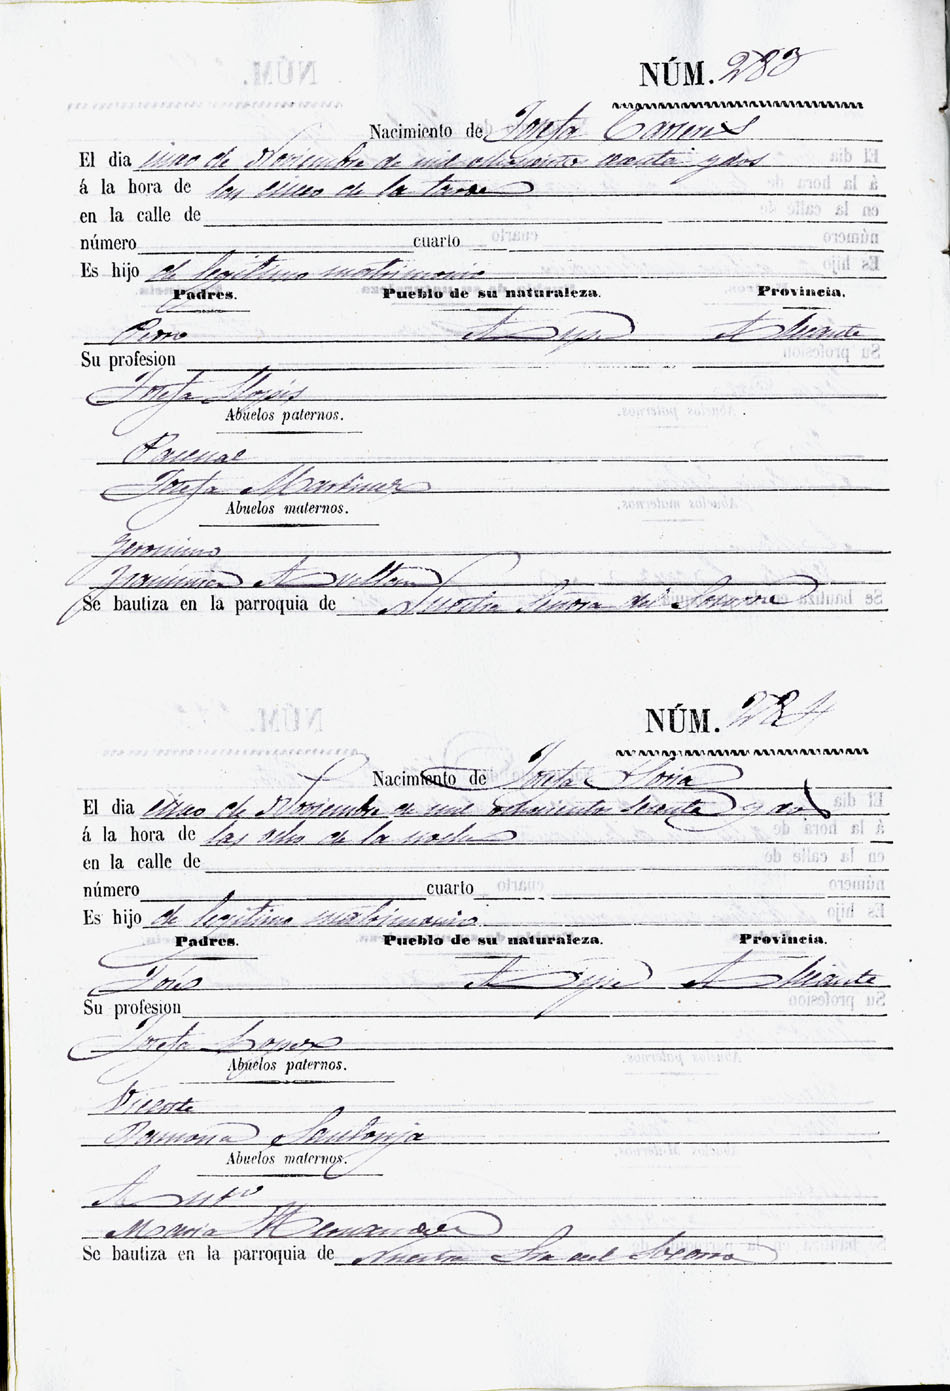 NÚM. 283
Nacimiento de Josefa
El dia cinco de Noviembre de mil ochociento secenta y dos
á la hora de las cinco de la tarde
en la calle de
número cuarto
Es hijo de legitimo matrimonio
Padres. Pueblo de su naturaleza. Provincia.
Aspe Alicante
Su profesion
Josefa Llopis
Abuelos paternos.
Pascual
Josefa Martinez
Abuelos maternos.
Geronimo
Se bautiza en la parroquia de Nuestra Señora del Socorro
NÚM. 284
Nacimiento de Josefa
El dia cinco de Noviembre de mil ochociento secenta y dos
á la hora de las ocho de la noche
en la calle de
número cuarto
Es hijo de legitimo matrimonio
Padres. Pueblo de su naturaleza. Provincia.
José Aspe Alicante
Su profesion
Josefa Lopez
Abuelos paternos.
Vicente
Ramona Santonja
Abuelos maternos.
Anto
Maria Hernandez
Se bautiza en la parroquia de Nuestra Sra del Socorro